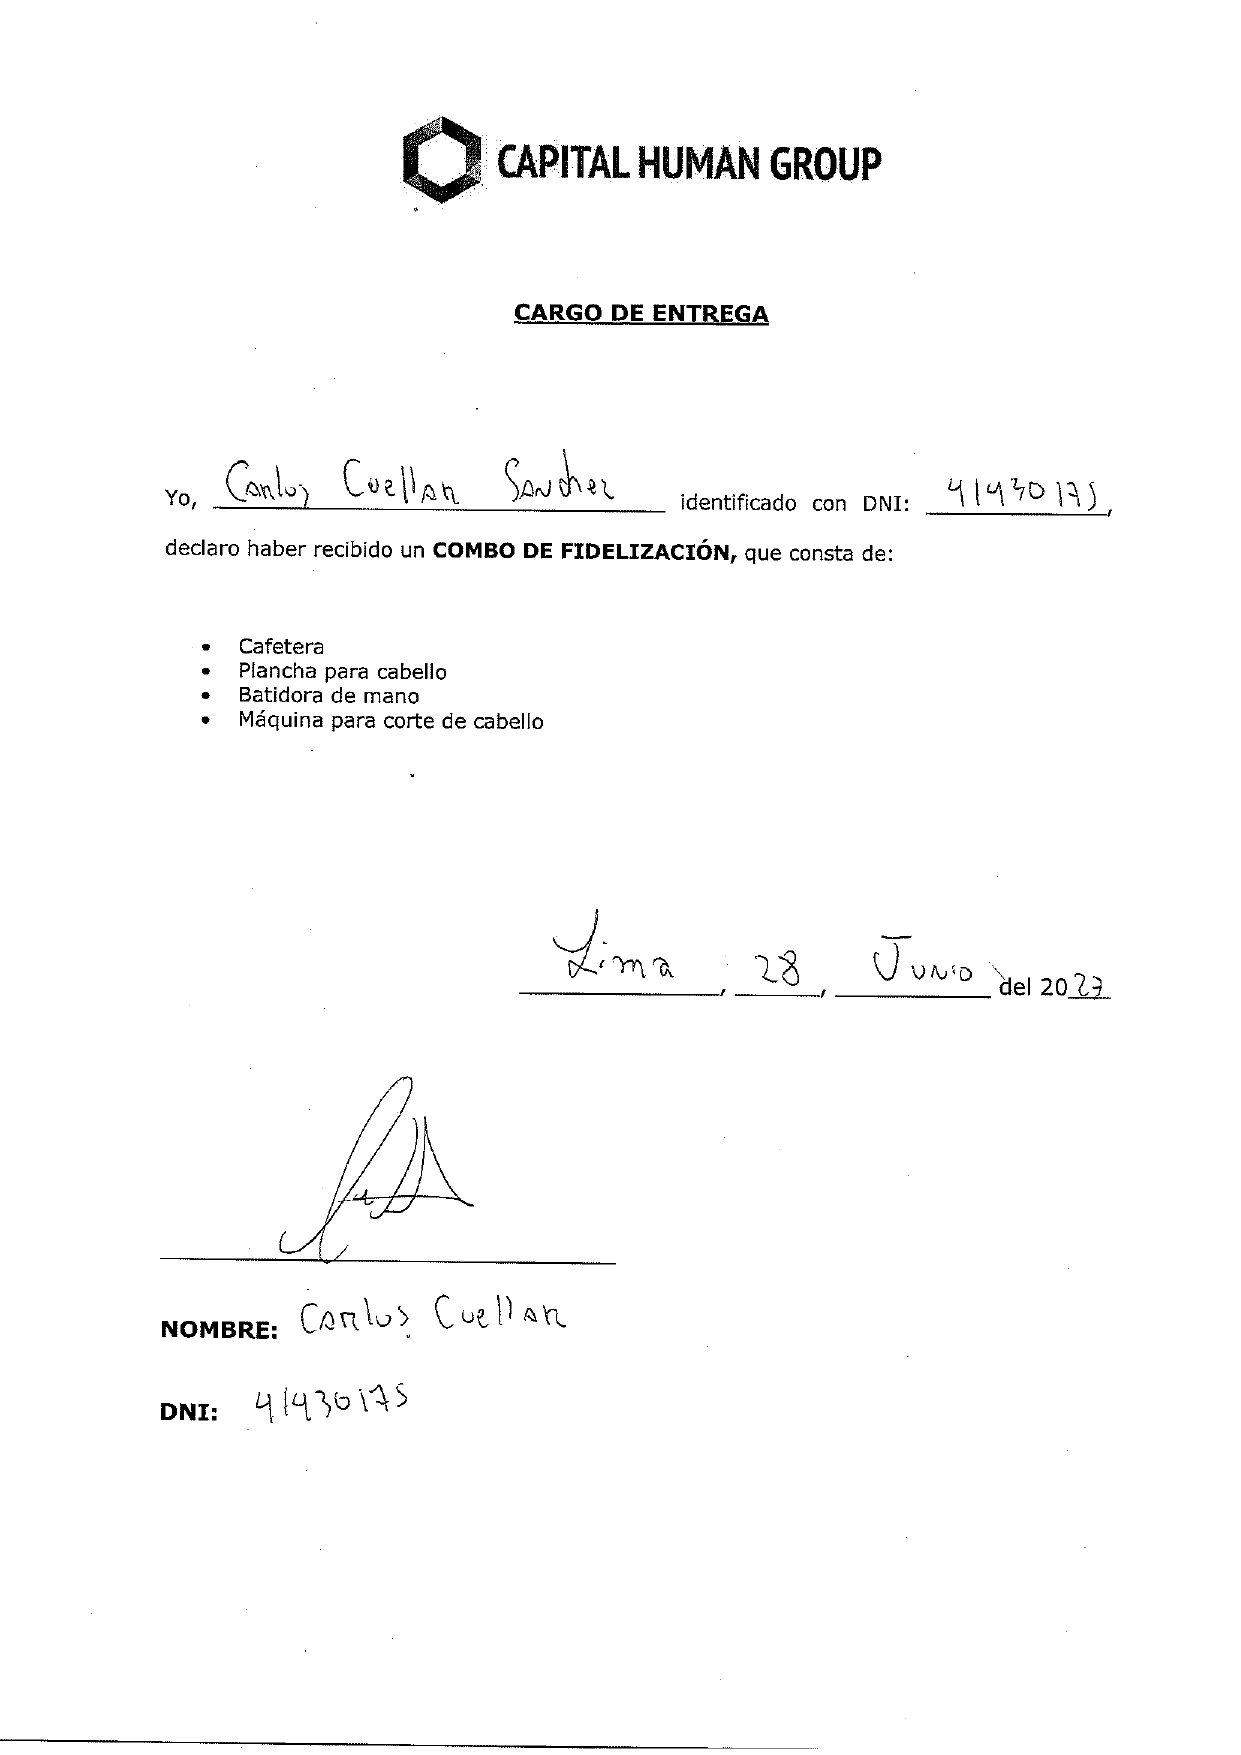 CAPITAL HUMAN GROUP
CARGO DE ENTREGA
Yo, Carlos Cuellar Sanchez identificado con DNI: 41430175,
declaro haber recibido un COMBO DE FIDELIZACIÓN, que consta de:
• Cafetera
• Plancha para cabello
• Batidora de mano
• Máquina para corte de cabello
Lima, 28, Junio del 2023
NOMBRE: Carlos Cuellar
DNI: 41430175